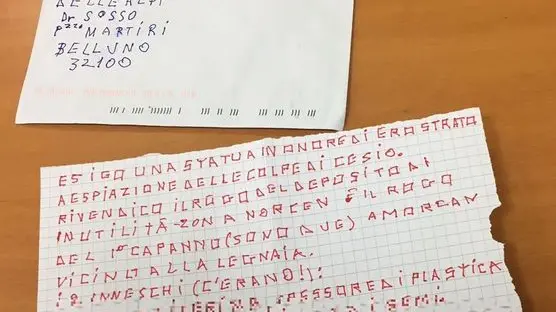 DELLE ALPI
Dr SOSSO
P.zza MARTIRI
BELLUNO
32100
ESIGO UNA STATUA IN ONORE DI EROSTRATO
A ESPIAZIONE DELLE COLPE DI CESIO.
RIVENDICO IL ROGO DEL DEPOSITO DI
INUTILITÀ-ZON A NORCEN E IL ROGO
DEL 1° CAPANNO (SONO DUE) A MORGAN
VICINO ALLA LEGNAIA.
INNESCHI (C'ERANO!):
SPESSORE DI PLASTICA
DI SEMI.